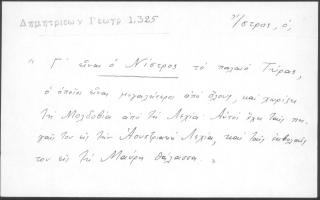 Δημητριεων Γεωγρ 1.325
Νίστρος, ὁ,
" Γ΄ εἶναι ὁ Νίστρος τὸ παλαιὸ Τύρας,
ὁ ὁποῖος εἶναι μεγαλύτερος ἀπὸ ὅλους, καὶ χωρίζει
τὴ Μολδοβία ἀπὸ τὴ Λεχία. Αὐτὸς ἔχει ταῖς πη-
γαῖς του εἰς τὴν Αουστριακὴ Λεχία, καὶ ταῖς ἐκβολαῖς
του εἰς τὴ Μαύρη θάλασσα. "